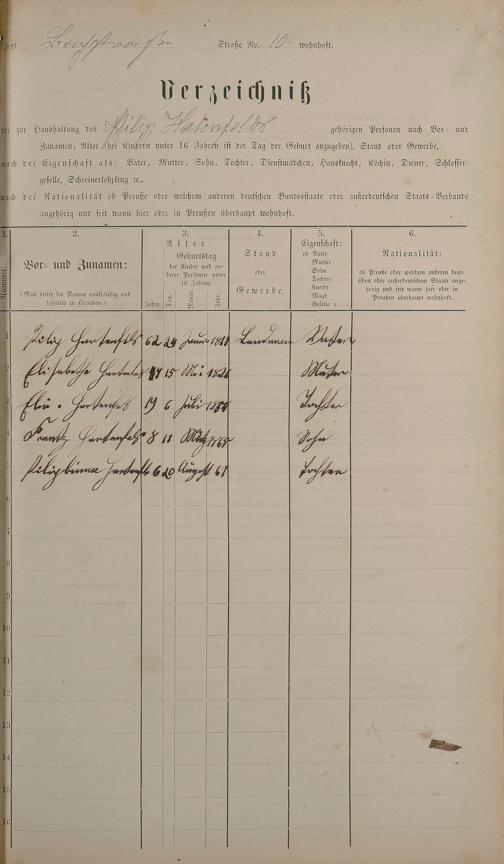 Straße No. 10 wohnhaft.
Verzeichniß
der zur Haushaltung des Philip gehörigen Personen nach Vor- und
Zunamen, Alter (bei Kindern unter 16 Jahren ist der Tag der Geburt anzugeben), Stand oder Gewerbe,
nach der Eigenschaft als: Vater, Mutter, Sohn, Tochter, Dienstmädchen, Hausknecht, Köchin, Diener, Schlosser-
geselle, Schreinerlehrling ec.,
nach der Nationalität ob Preuße oder welchem anderen deutschen Bundesstaate oder außerdeutschen Staats-Verbande
angehörig und seit wann hier oder in Preußen überhaupt wohnhaft.
1. 2. 3. 4. 5. 6.
Nummer.
Vor- und Zunamen:
(Man bittet die Namen vollständig und
leserlich zu schreiben.)
Alter
Geburtstag
der Kinder und an-
derer Personen unter
16 Jahren.
Jahre. Tag. Monat. Jahr.
Stand
oder
Gewerbe.
Eigenschaft:
ob Vater
Mutter
Sohn
Tochter
Knecht
Magd
Geselle u.
Nationalität:
ob Preuße oder welchem anderen deut-
schen oder außerdeutschen Staate ange-
hörig und seit wann hier oder in
Preußen überhaupt wohnhaft.
1 62 24 Januar Landmann Vater
2 Elisabetha 15 Mai 1826 Mutter
3 19 6 Juli Tochter
4 8 11 Sohn
5 6 20 August 67 Tochter
6
7
8
9
10
11
12
13
14
15
16